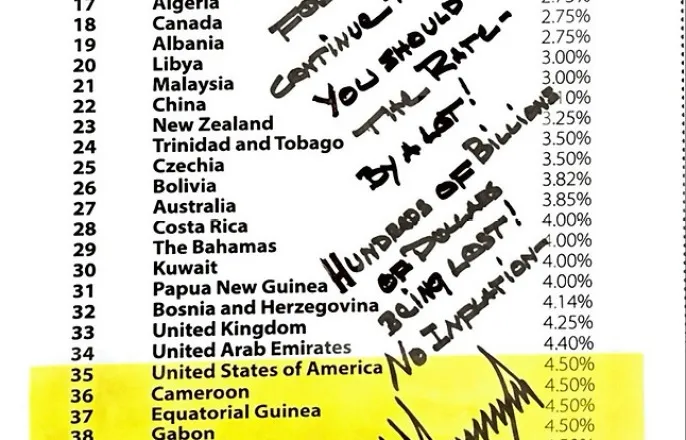 17 Algeria 2.75%
18 Canada 2.75%
19 Albania 2.75%
20 Libya 3.00%
21 Malaysia 3.00%
22 China 10%
23 New Zealand 3.25%
24 Trinidad and Tobago 3.50%
25 Czechia 3.50%
26 Bolivia 3.82%
27 Australia 3.85%
28 Costa Rica 4.00%
29 The Bahamas 4.00%
30 Kuwait 4.00%
31 Papua New Guinea 4.00%
32 Bosnia and Herzegovina 4.14%
33 United Kingdom 4.25%
34 United Arab Emirates 4.40%
35 United States of America 4.50%
36 Cameroon 4.50%
37 Equatorial Guinea 4.50%
38 Gabon 4.50%
CONTINUE
YOU SHOULD
THE RATE-
BY A LOT!
HUNDREDS OF BILLIONS
OF DOLLARS
BEING LOST!
NO INFLATION-